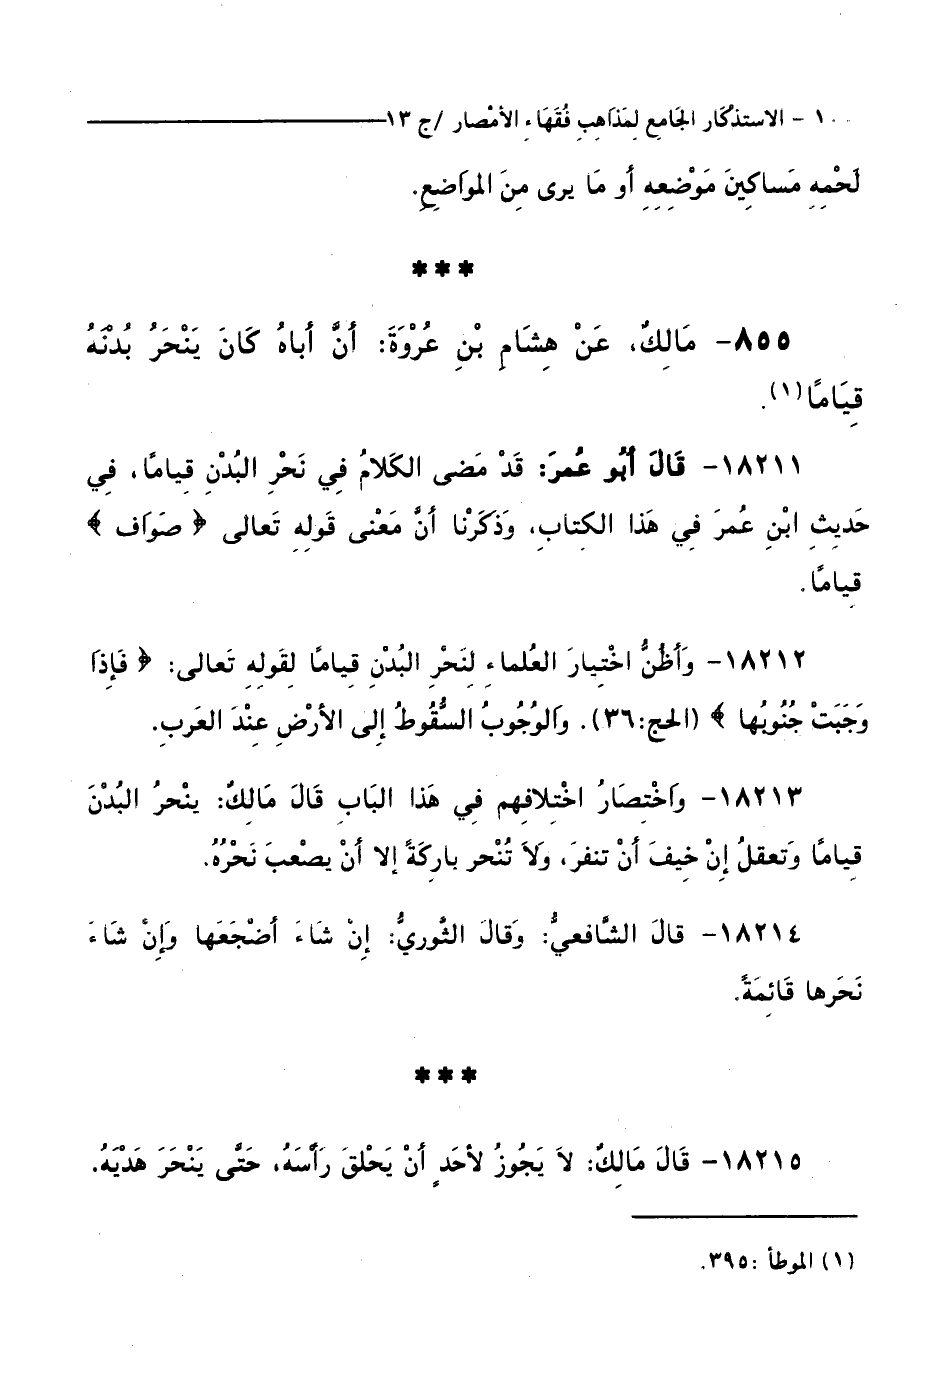 ١٠٠ - الاستذكار الجامع لمذاهب فقهاء الأمصار /ج ١٣
لَحْمِهِ مَساكِينَ مَوْضِعِهِ أو مَا يرى مِنَ المواَضِعِ.
***
٨٥٥- مَالِكٌ، عَنْ هِشَامِ بْنِ عُرْوَةَ: أنَّ أباهُ كَانَ يَنْحَرُ بُدْنَهُ
قِيَامًا(١).
١٨٢١١- قَالَ أبُو عُمرَ: قَدْ مَضى الكَلامُ فِي نَحْرِ البُدْنِ قِيامًا، فِي
حَدِيثِ ابْنِ عُمرَ فِي هَذا الكتابِ، وَذكَرْنا أنَّ مَعْنى قَولِهِ تَعالى ﴿ صَوَاَف ﴾
قِيامًا.
١٨٢١٢- وَأظُنُّ اخْتِيارَ العُلماءِ لنَحْرِ البُدْنِ قِيامًا لقَولِهِ تَعالى: ﴿ فَإذَا
وَجَبَتْ جُنُوبُها ﴾ (الحج:٣٦). والوُجُوبُ السُّقُوطُ إلى الأرْضِ عِنْدَ العَربِ.
١٨٢١٣- واَخْتِصَارُ اخْتِلافِهِم فِي هَذا البَابِ قَالَ مَالِكٌ: ينْحرُ البُدْنَ
قِيامًا وَتعقلُ إنْ خيفَ أنْ تنفرَ، ولَا تُنْحر بارِكَةً إلا أنْ يصْعبَ نَحْرُهُ.
١٨٢١٤- قالَ الشَّافعيُّ: وَقالَ الثَّوريُّ: إنْ شَاءَ أضْجَعَها وَإنْ شَاءَ
نَحَرها قَائِمَةً.
***
١٨٢١٥- قَالَ مَالِكٌ: لَا يَجُوزُ لأحَدٍ أنْ يَحْلقَ رَأسَهُ، حَتَّى يَنْحَرَ هَدْيَهُ.
(١) الموطأ :٣٩٥.